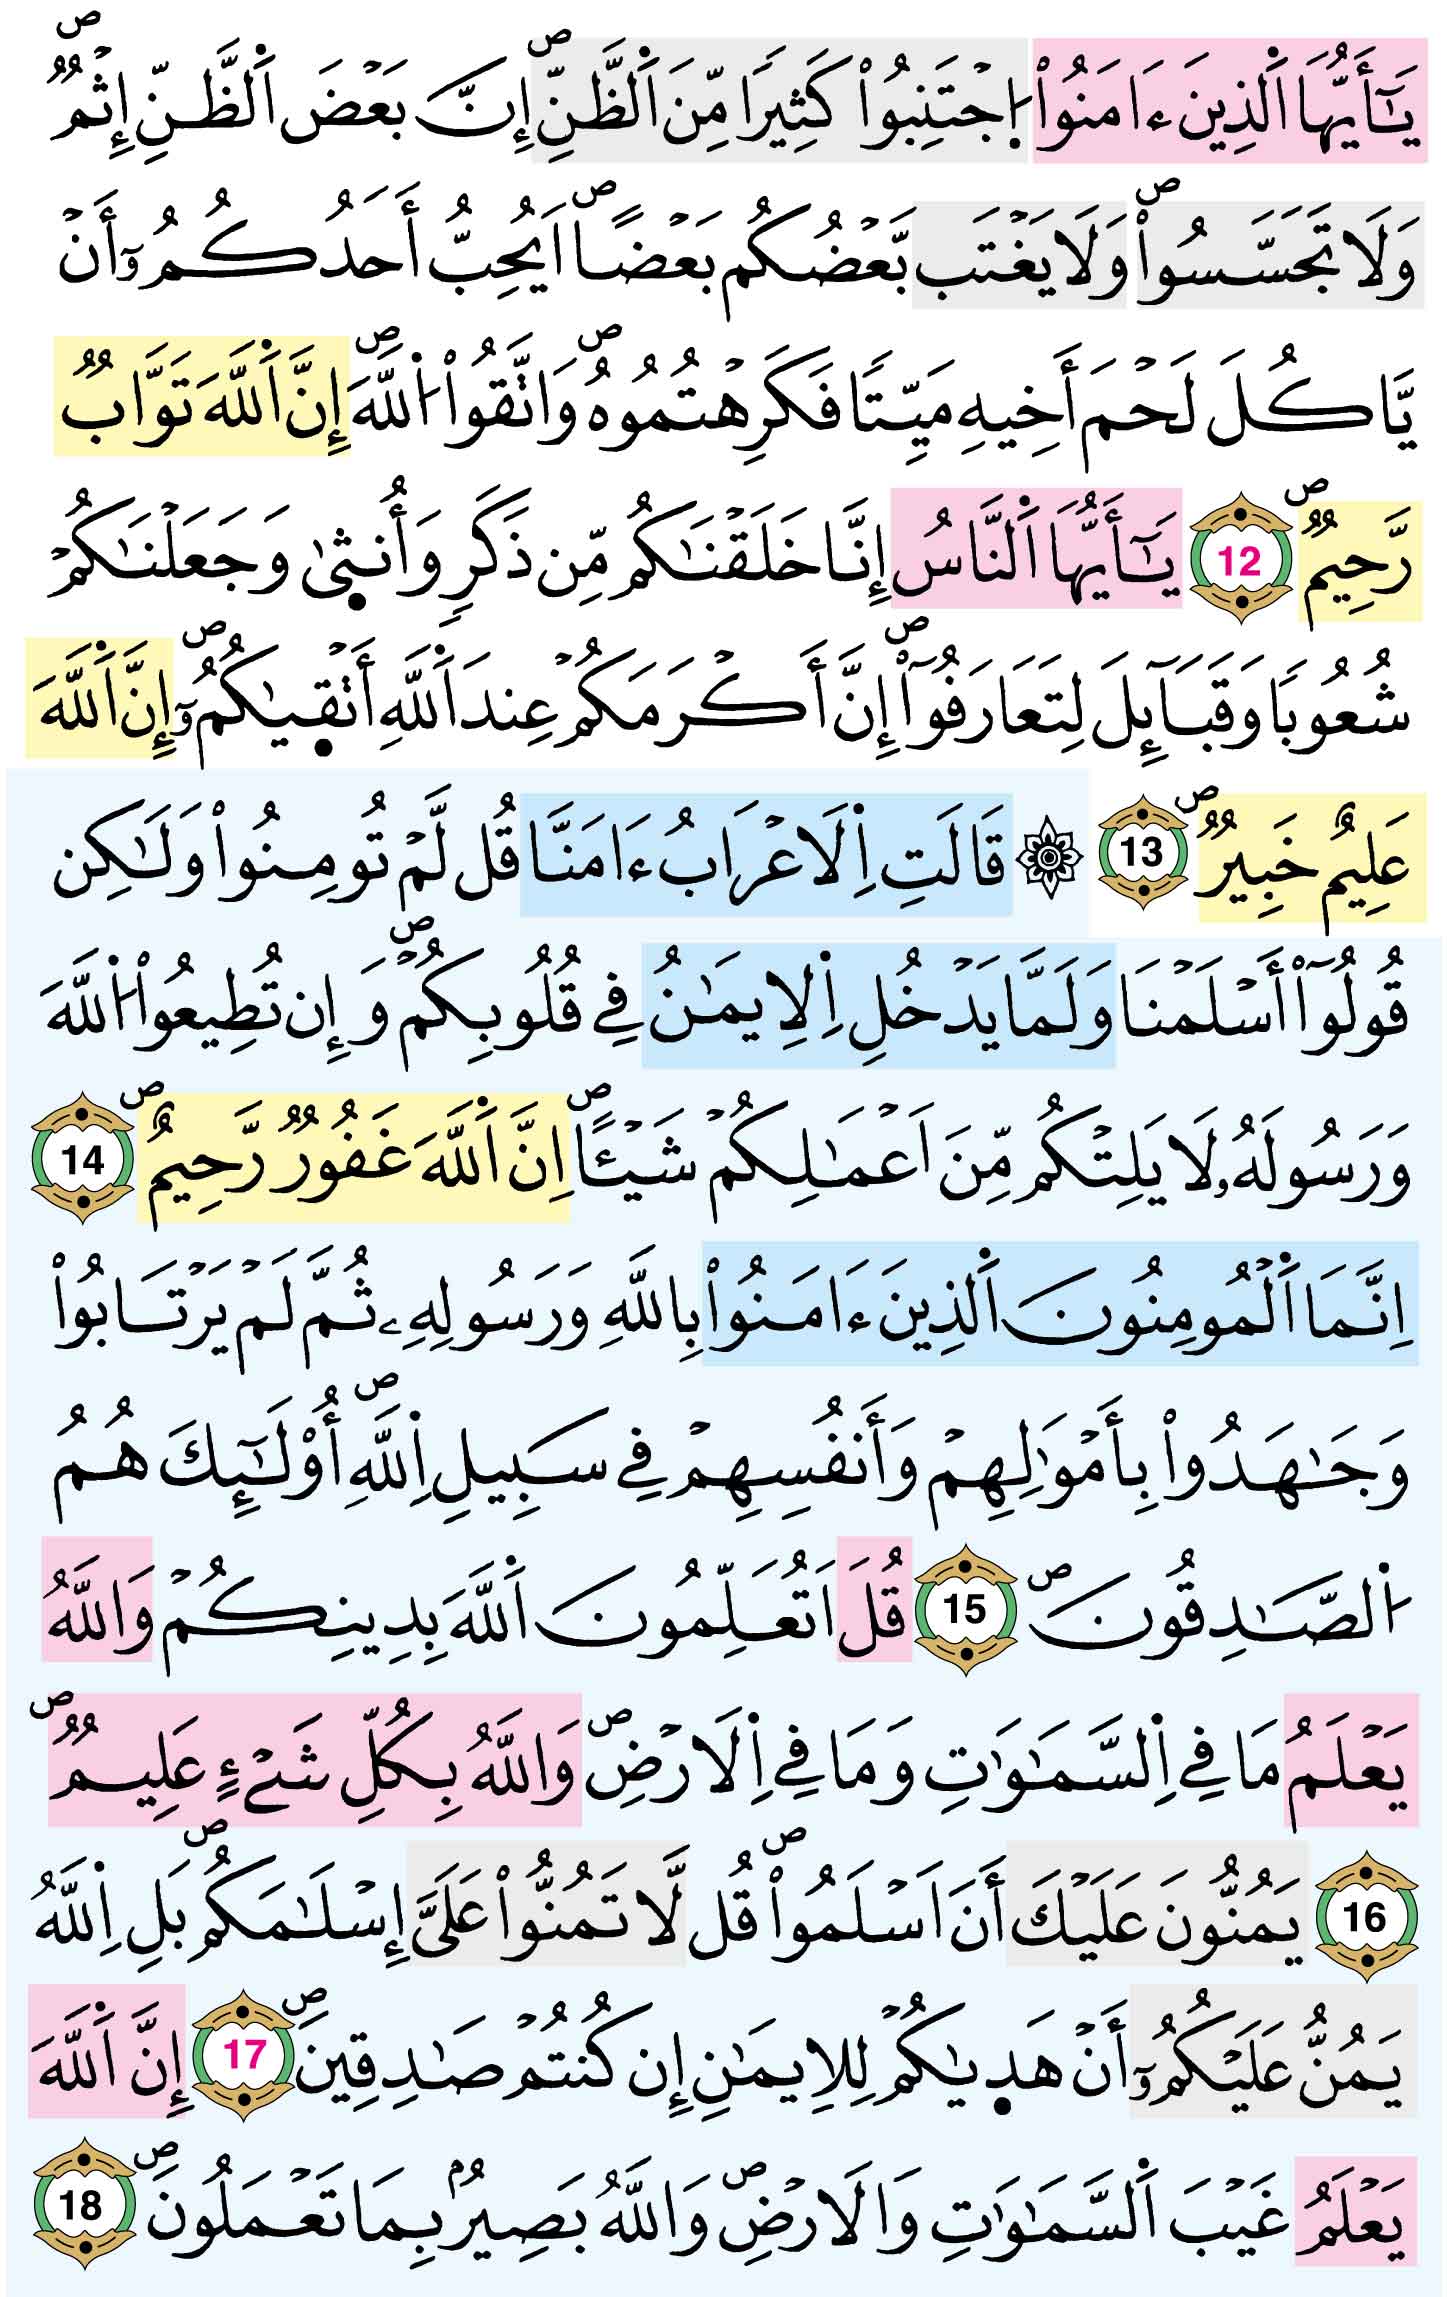 يَٰٓأَيُّهَا اَ۬لذِينَ ءَامَنُواْ اُ۪جْتَنِبُواْ كَثِيراٗ مِّنَ اَ۬لظَّنِّۖ إِنَّ بَعْضَ اَ۬لظَّنِّ إِثْمٞۖ
وَلَا تَجَسَّسُواْۖ وَلَا يَغْتَب بَّعْضُكُم بَعْضاًۖ اَيُحِبُّ أَحَدُكُمُۥٓ أَنْ
يَّاكُلَ لَحْمَ أَخِيهِ مَيِّتاٗ فَكَرِهْتُمُوهُۖ وَاتَّقُواْ اُ۬للَّهَۖ إِنَّ اَ۬للَّهَ تَوَّابٞ
رَّحِيمٞۖ 12 يَٰٓأَيُّهَا اَ۬لنَّاسُ إِنَّا خَلَقْنَٰكُم مِّن ذَكَرٖ وَأُنث۪ىٰ وَجَعَلْنَٰكُمْ
شُعُوباٗ وَقَبَآئِلَ لِتَعَارَفُوٓاْۖ إِنَّ أَكْرَمَكُمْ عِندَ اَ۬للَّهِ أَتْق۪يٰكُمُۥٓۖ إِنَّ اَ۬للَّهَ
عَلِيمٌ خَبِيرٞۖ 13 ۞ قَالَتِ اِ۬لَاعْرَابُ ءَامَنَّا قُل لَّمْ تُومِنُواْ وَلَٰكِن
قُولُوٓاْ أَسْلَمْنَا وَلَمَّا يَدْخُلِ اِ۬لِايمَٰنُ فِي قُلُوبِكُمْۖ وَإِن تُطِيعُواْ اُ۬للَّهَ
وَرَسُولَهُۥ لَا يَلِتْكُم مِّنَ اَعْمَٰلِكُمْ شَيْـٔاًۖ اِنَّ اَ۬للَّهَ غَفُورٞ رَّحِيمٌۖ 14
اِنَّمَا اَ۬لْمُومِنُونَ اَ۬لذِينَ ءَامَنُواْ بِاللَّهِ وَرَسُولِهِۦ ثُمَّ لَمْ يَرْتَابُواْ
وَجَٰهَدُواْ بِأَمْوَٰلِهِمْ وَأَنفُسِهِمْ فِي سَبِيلِ اِ۬للَّهِۖ أُوْلَٰٓئِكَ هُمُ
اُ۬لصَّٰدِقُونَۖ 15 قُلَ اَتُعَلِّمُونَ اَ۬للَّهَ بِدِينِكُمْ وَاللَّهُ
يَعْلَمُ مَا فِي اِ۬لسَّمَٰوَٰتِ وَمَا فِي اِ۬لَارْضِۖ وَاللَّهُ بِكُلِّ شَےْءٍ عَلِيمٞۖ
16 يَمُنُّونَ عَلَيْكَ أَنَ اَسْلَمُواْۖ قُل لَّا تَمُنُّواْ عَلَيَّ إِسْلَٰمَكُمۖ بَلِ اِ۬للَّهُ
يَمُنُّ عَلَيْكُمُۥٓ أَنْ هَد۪يٰكُمْ لِلِايمَٰنِ إِن كُنتُمْ صَٰدِقِينَۖ 17 إِنَّ اَ۬للَّهَ
يَعْلَمُ غَيْبَ اَ۬لسَّمَٰوَٰتِ وَالَارْضِۖ وَاللَّهُ بَصِيرُۢ بِمَا تَعْمَلُونَۖ 18